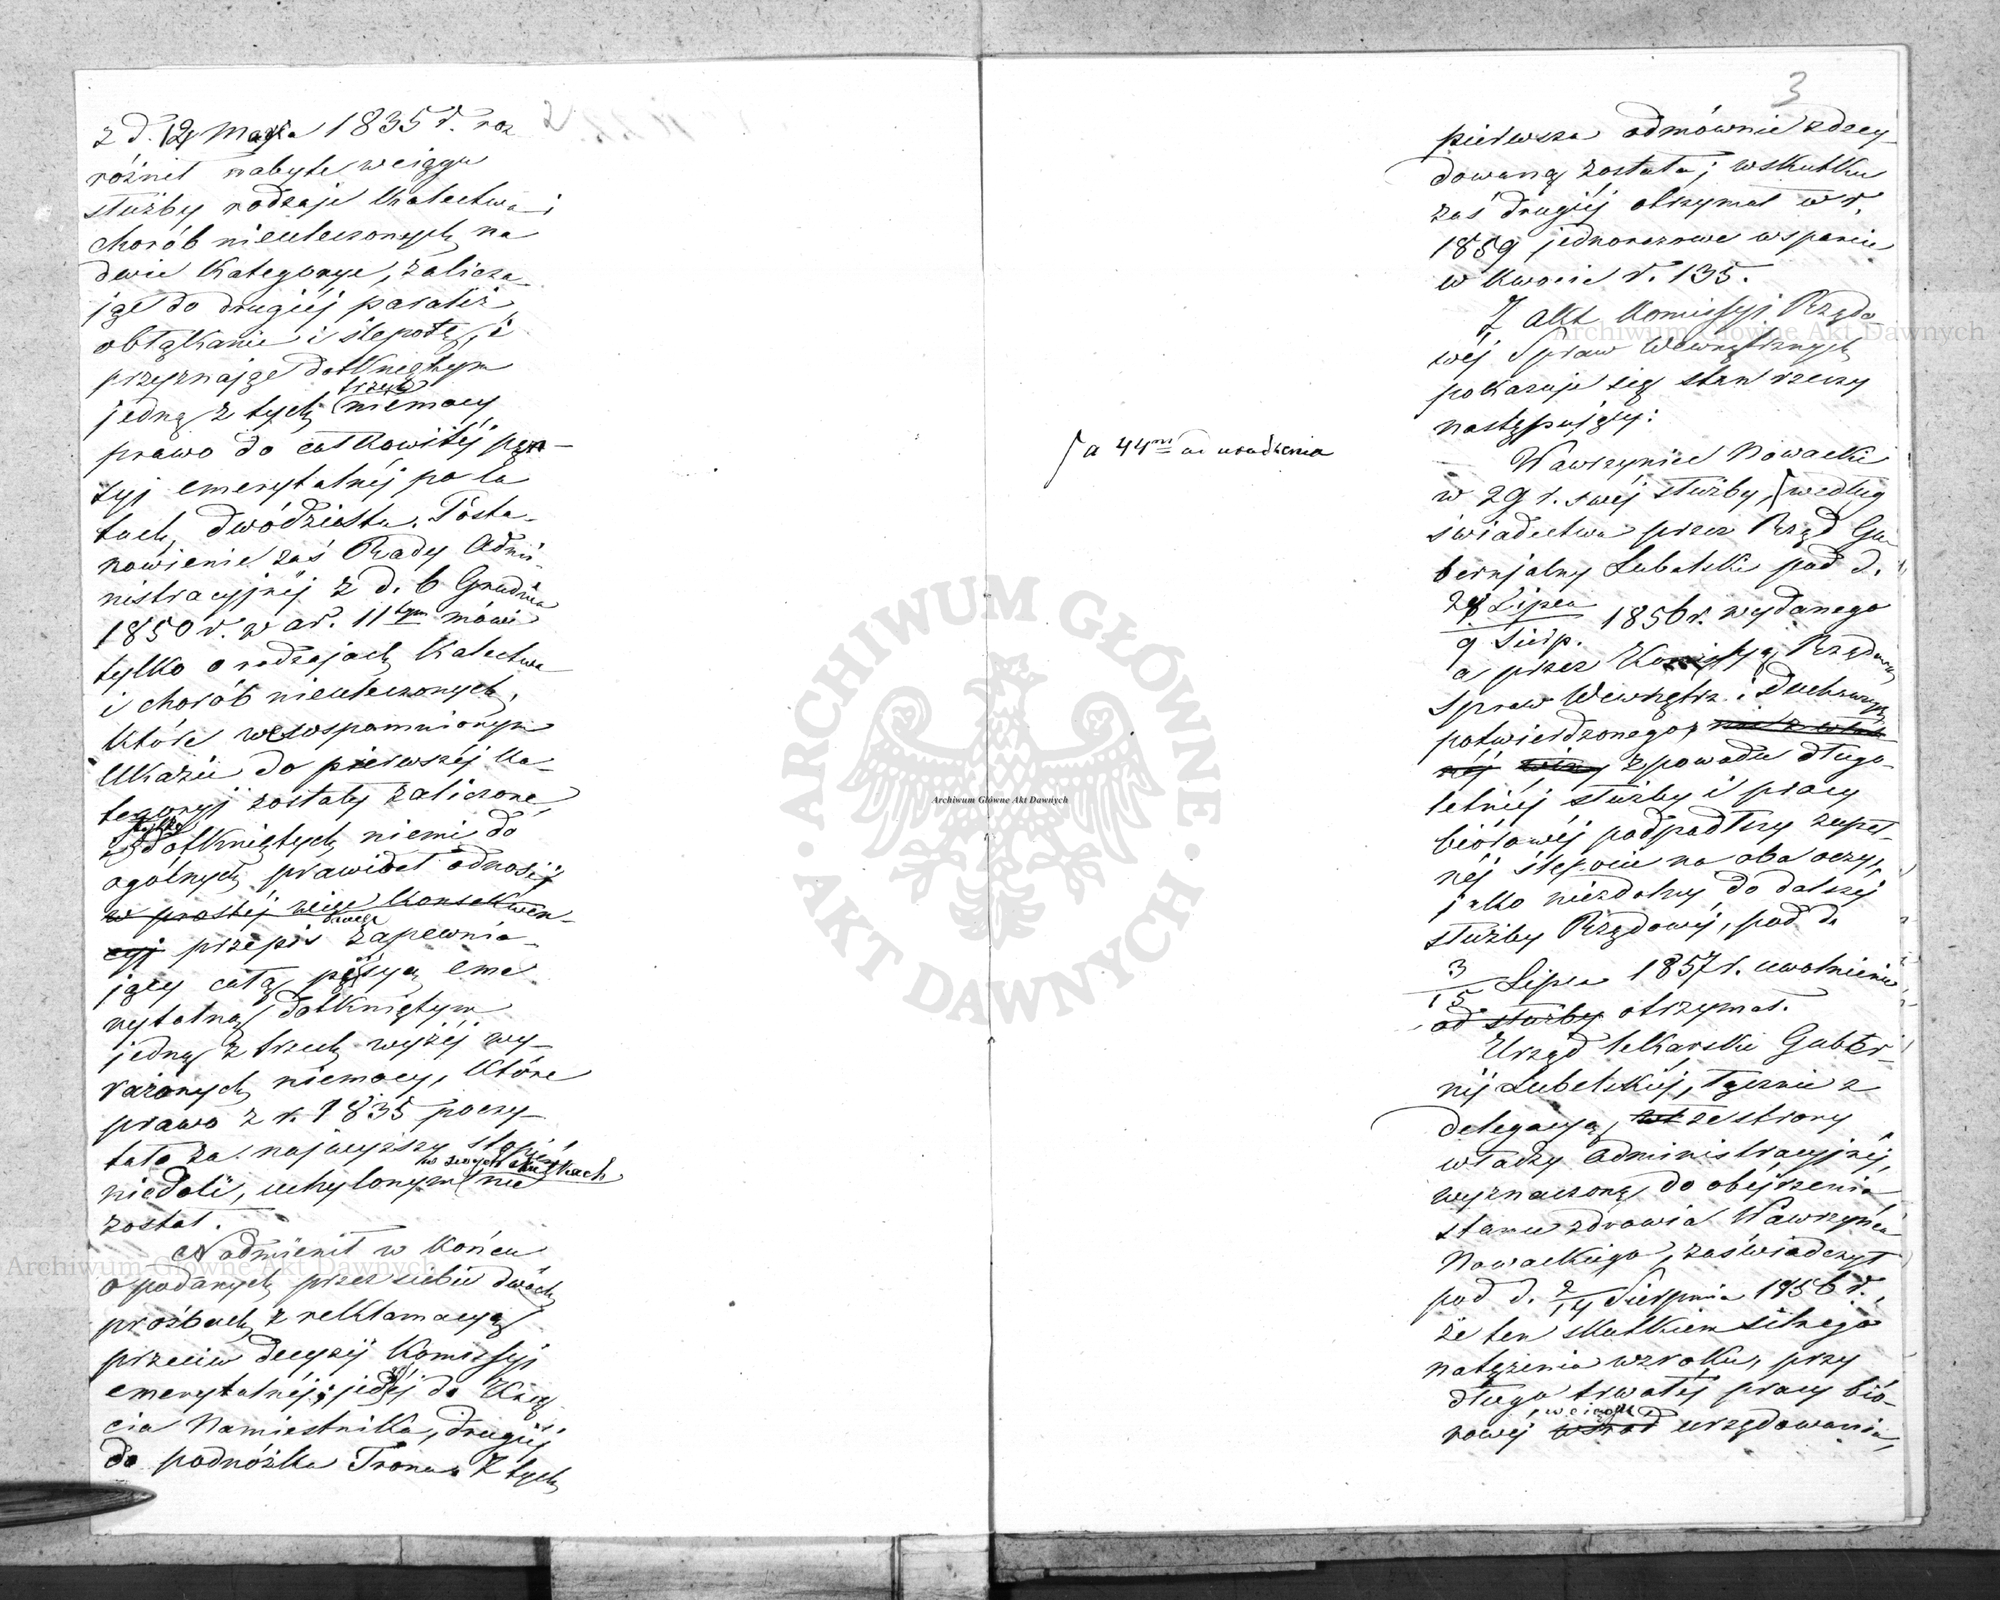 z d. 12 Marca 1835 r. roz
różnił nabyte w ciągu
służby rodzaje kalectwa i
chorób nieuleczonych na
dwie kategorye, zalicza
jąc do drugiéj paraliż
obłąkanie i ślepotę, i
przyznając dotkniętym
jedną z tych trzech niemocy
prawo do całkowitéj pen-
syi emerytalnéj po la
tach dwódziestu. Posta-
nowienie zaś Rady Admi-
nistracyjnéj z d. 6 Grudnia
1850 r. w ar. 11tym mówi
tylko o rodzajach kalectwa
i chorób nieuleczonych,
które we wspomnionym
Ukazie do pierwszéj ka-
tegoryi zostały zaliczone,
dotkniętych niemi do
ogólnych prawideł odnosi;
w prostéj więc konsekwen-
cyi przepis dawny zapewnia-
jący całą pensyą eme
rytalną dotkniętym
jedną z trzech wyżéj wy-
rażonych niemocy, które
prawo z r. 1835 poczy-
tało za najwyższy stopień
niedoli, uchylonym w swych skutkach nie
został.
Nadmienił w końcu
o podanych przez siebie dwóch
prośbach z reklamacyą
przeciw decyzyi Komissyi
emerytalnéj; jednéj do Księ
cia Namiestnika, drugiéj
do podnóżka Tronu. Z tych
3
pierwsza odmównie zdecy-
dowaną została; wskutku
zaś drugiéj otrzymał w r.
1859 jednorazowe wsparcie
w kwocie r. 135.
Z akt Komissyi Rządo
wéj Spraw Wewnętrznych
pokazuje się stan rzeczy
następujący:
Wawrzyniec Nowacki
w 29 r. swéj służby, według
a 44m od urodzenia
świadectwa przez Rząd Gu
bernjalny Lubelski pod d.
28 Lipca
9 Sierp. 1856 r. wydanego
a przez Komissyą Rządową
Spraw Wewnętrz. i Duchownych
potwierdzonego,
z powodu długo-
letniéj służby i pracy
biórowéj podpadłszy zupeł-
néj ślepocie na oba oczy,
jako niezdolny do dalszéj
służby Rządowéj, pod d.
3/15 Lipca 1857 r. uwolnienie
od służby otrzymał.
Urząd lekarski Guber-
nij Lubelskiéj, łącznie z
delegacyą, ze strony
władzy administracyjnéj,
wyznaczoną do obéjrzenia
stanu zdrowia Wawrzyńca
Nowackiego, zaświadczył
pod d. 2/14 Sierpnia 1856 r.,
że ten skutkiem silnego
natężenia wzroku, przy
długo trwałéj pracy bió-
rowéj wśród w ciągu urzędowania,
Archiwum Główne Akt Dawnych
Archiwum Główne Akt Dawnych
Archiwum Główne Akt Dawnych
ARCHIWUM GŁÓWNE
AKT DAWNYCH